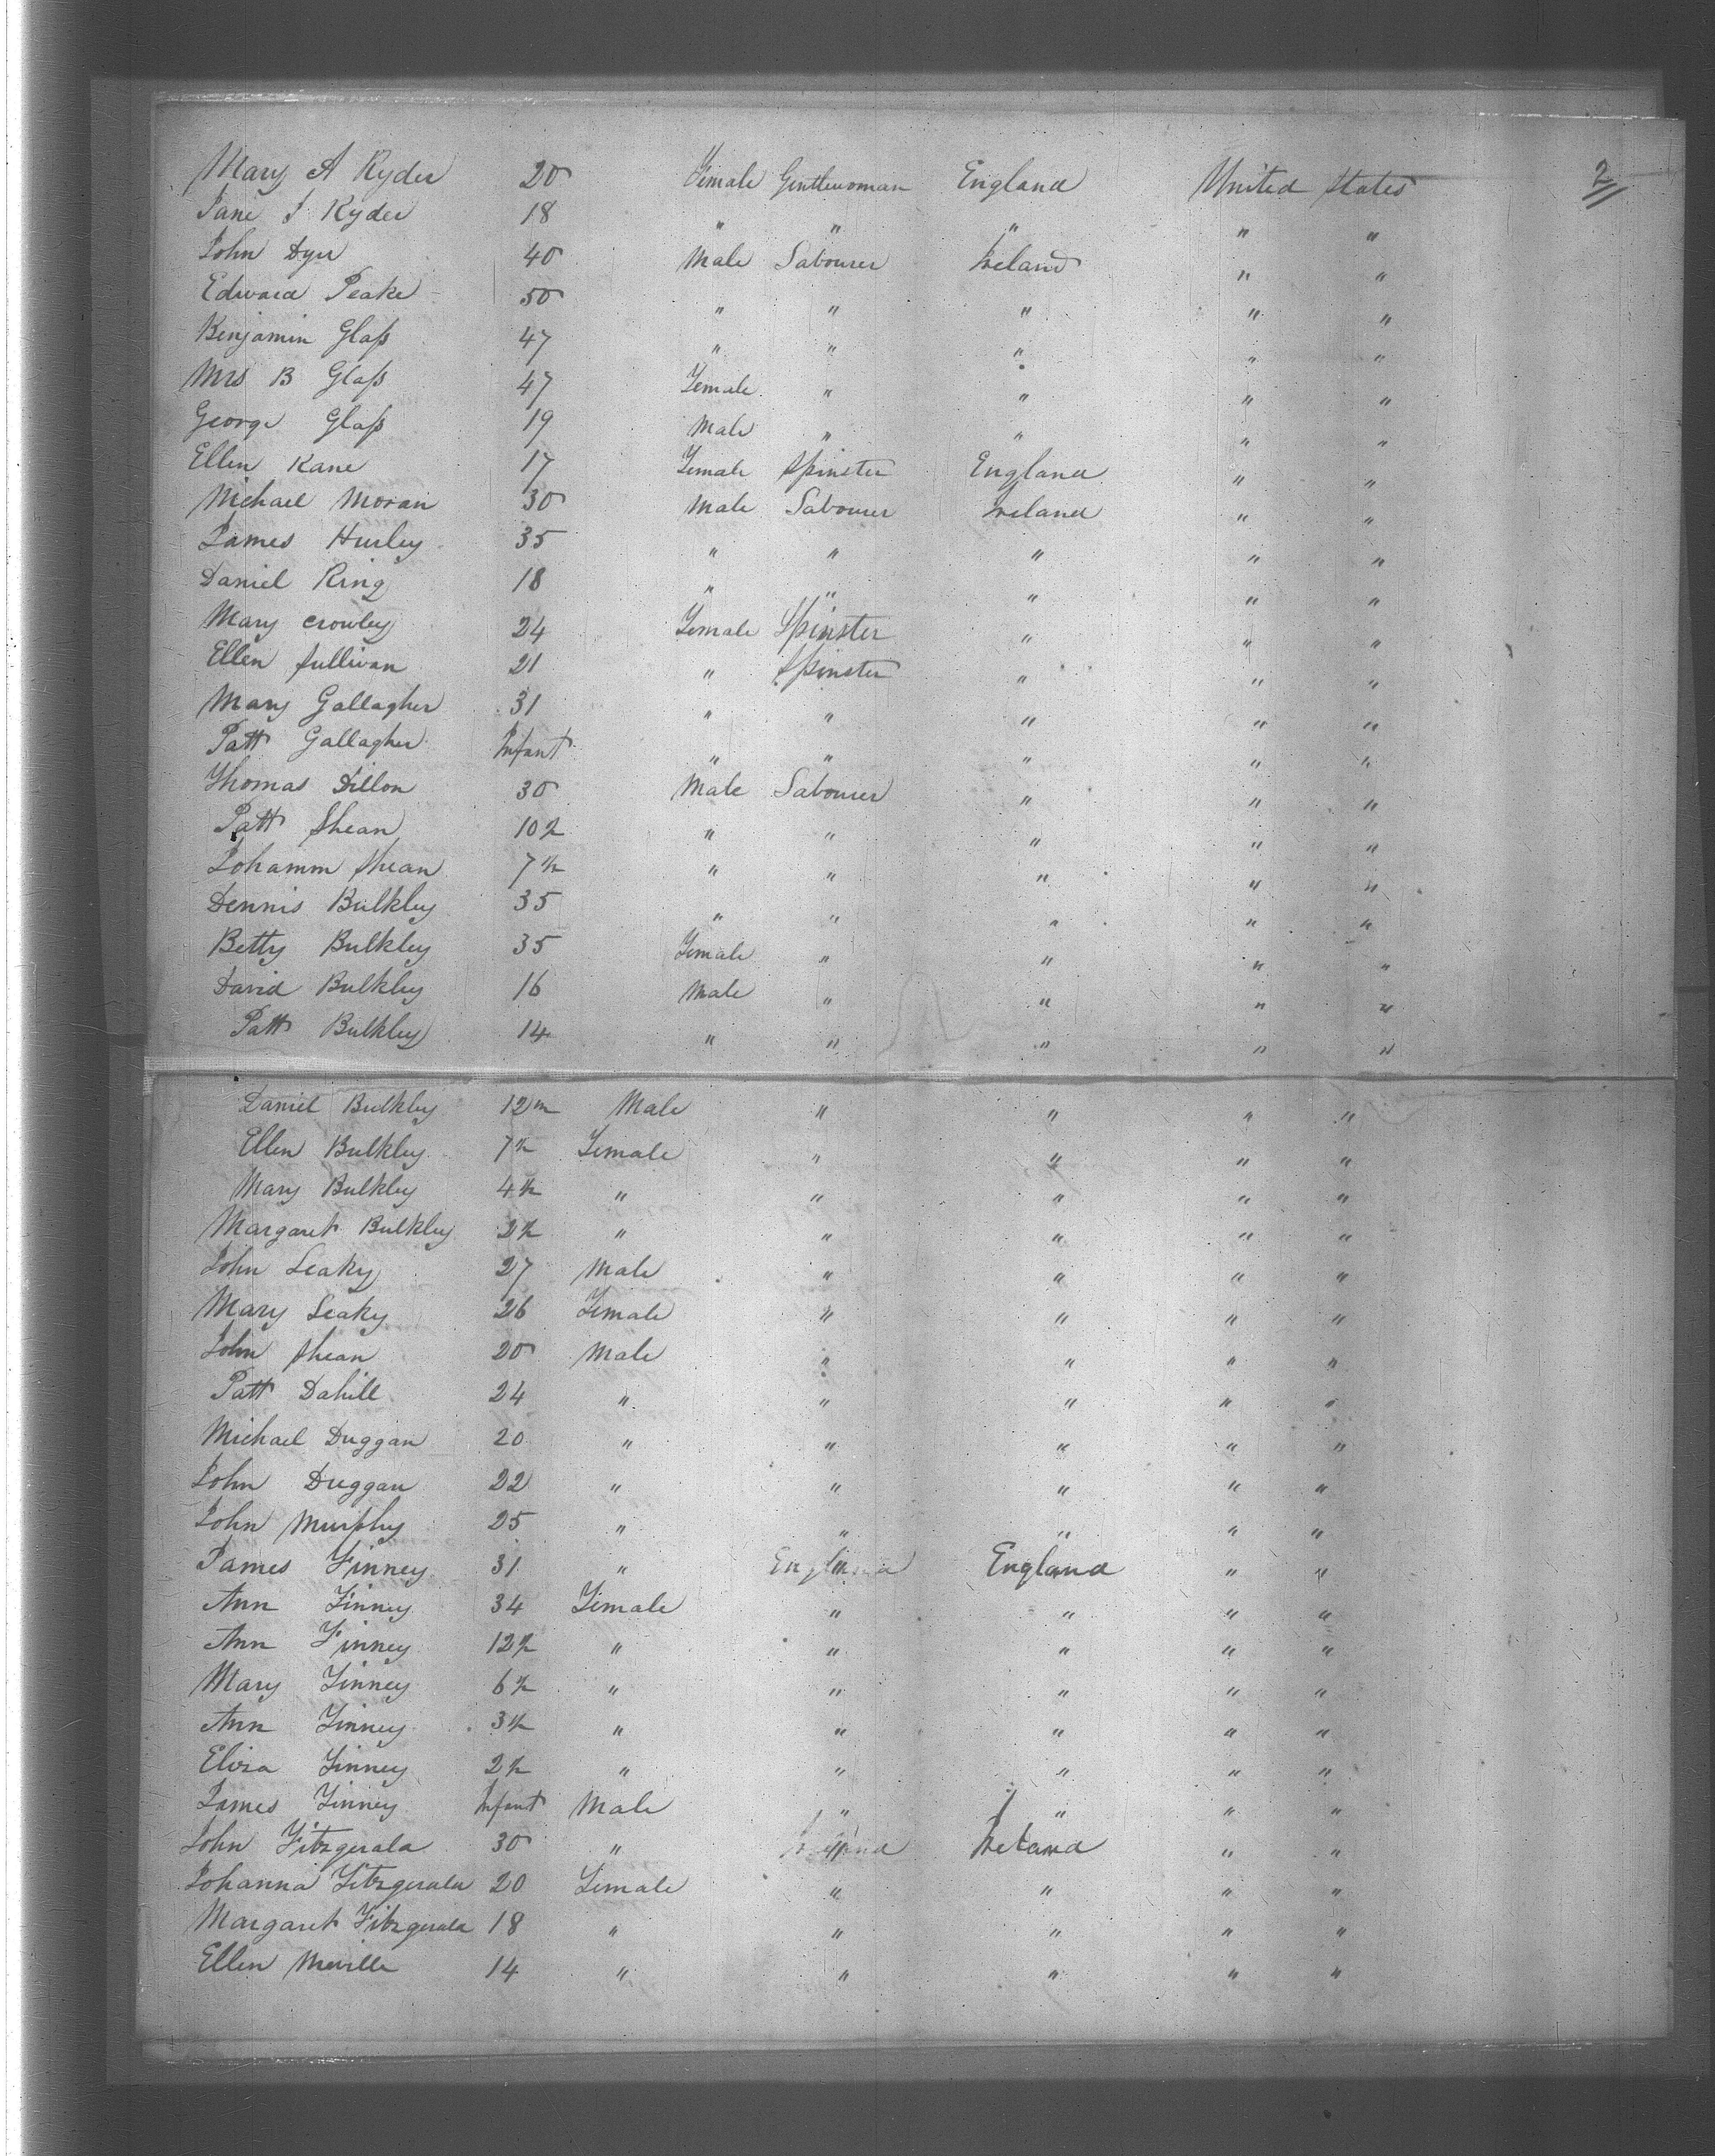 Mary A Ryder 20 Female Gentlewoman England United States 2
Jane J Ryder 18 " " " " "
John Dyer 40 Male Labourer Ireland " "
Edward Peake 50 " " " " "
Benjamin Glaſs 47 " " " " "
Mrs B Glaſs 47 Female " " " "
George Glaſs 19 Male " " " "
Ellen Kane 17 Female Spinster England " "
Michael Moran 30 Male Labourer Ireland " "
James Hurley 35 " " " " "
Daniel Ring 18 " " " " "
Mary Crowley 24 Female Spinster " " "
Ellen Sullivan 21 " Spinster " " "
Mary Gallagher 31 " " " " "
Patt Gallagher Infant " " " " "
Thomas Dillon 30 Male Labourer " " "
Patt Shean 10 " " " " "
Johamm Shean 7 " " " " "
Dennis Bulkley 35 " " " " "
Betty Bulkley 35 Female " " " "
David Bulkley 16 Male " " " "
Patt Bulkley 14 " " " " "
Daniel Bulkley 12 Male " " " "
Ellen Bulkley 7 Female " " " "
Mary Bulkley 4 " " " " "
Margaret Bulkley 2 " " " " "
John Leaky 27 Male " " " "
Mary Leaky 26 Female " " " "
John Shean 20 Male " " " "
Patt Dahill 24 " " " " "
Michael Duggan 20 " " " " "
John Duggan 22 " " " " "
John Murphy 25 " " " " "
James Finney 31 " " England " "
Ann Finney 34 Female " " " "
Ann Finney 12 " " " " "
Mary Finney 6 " " " " "
Ann Finney 3 " " " " "
Eliza Finney 2 " " " " "
James Finney Infant Male " " " "
John Fitzgerald 30 " " Ireland " "
Johanna Fitzgerald 20 Female " " " "
Margaret Fitzgerald 18 " " " " "
Ellen 14 " " " " "